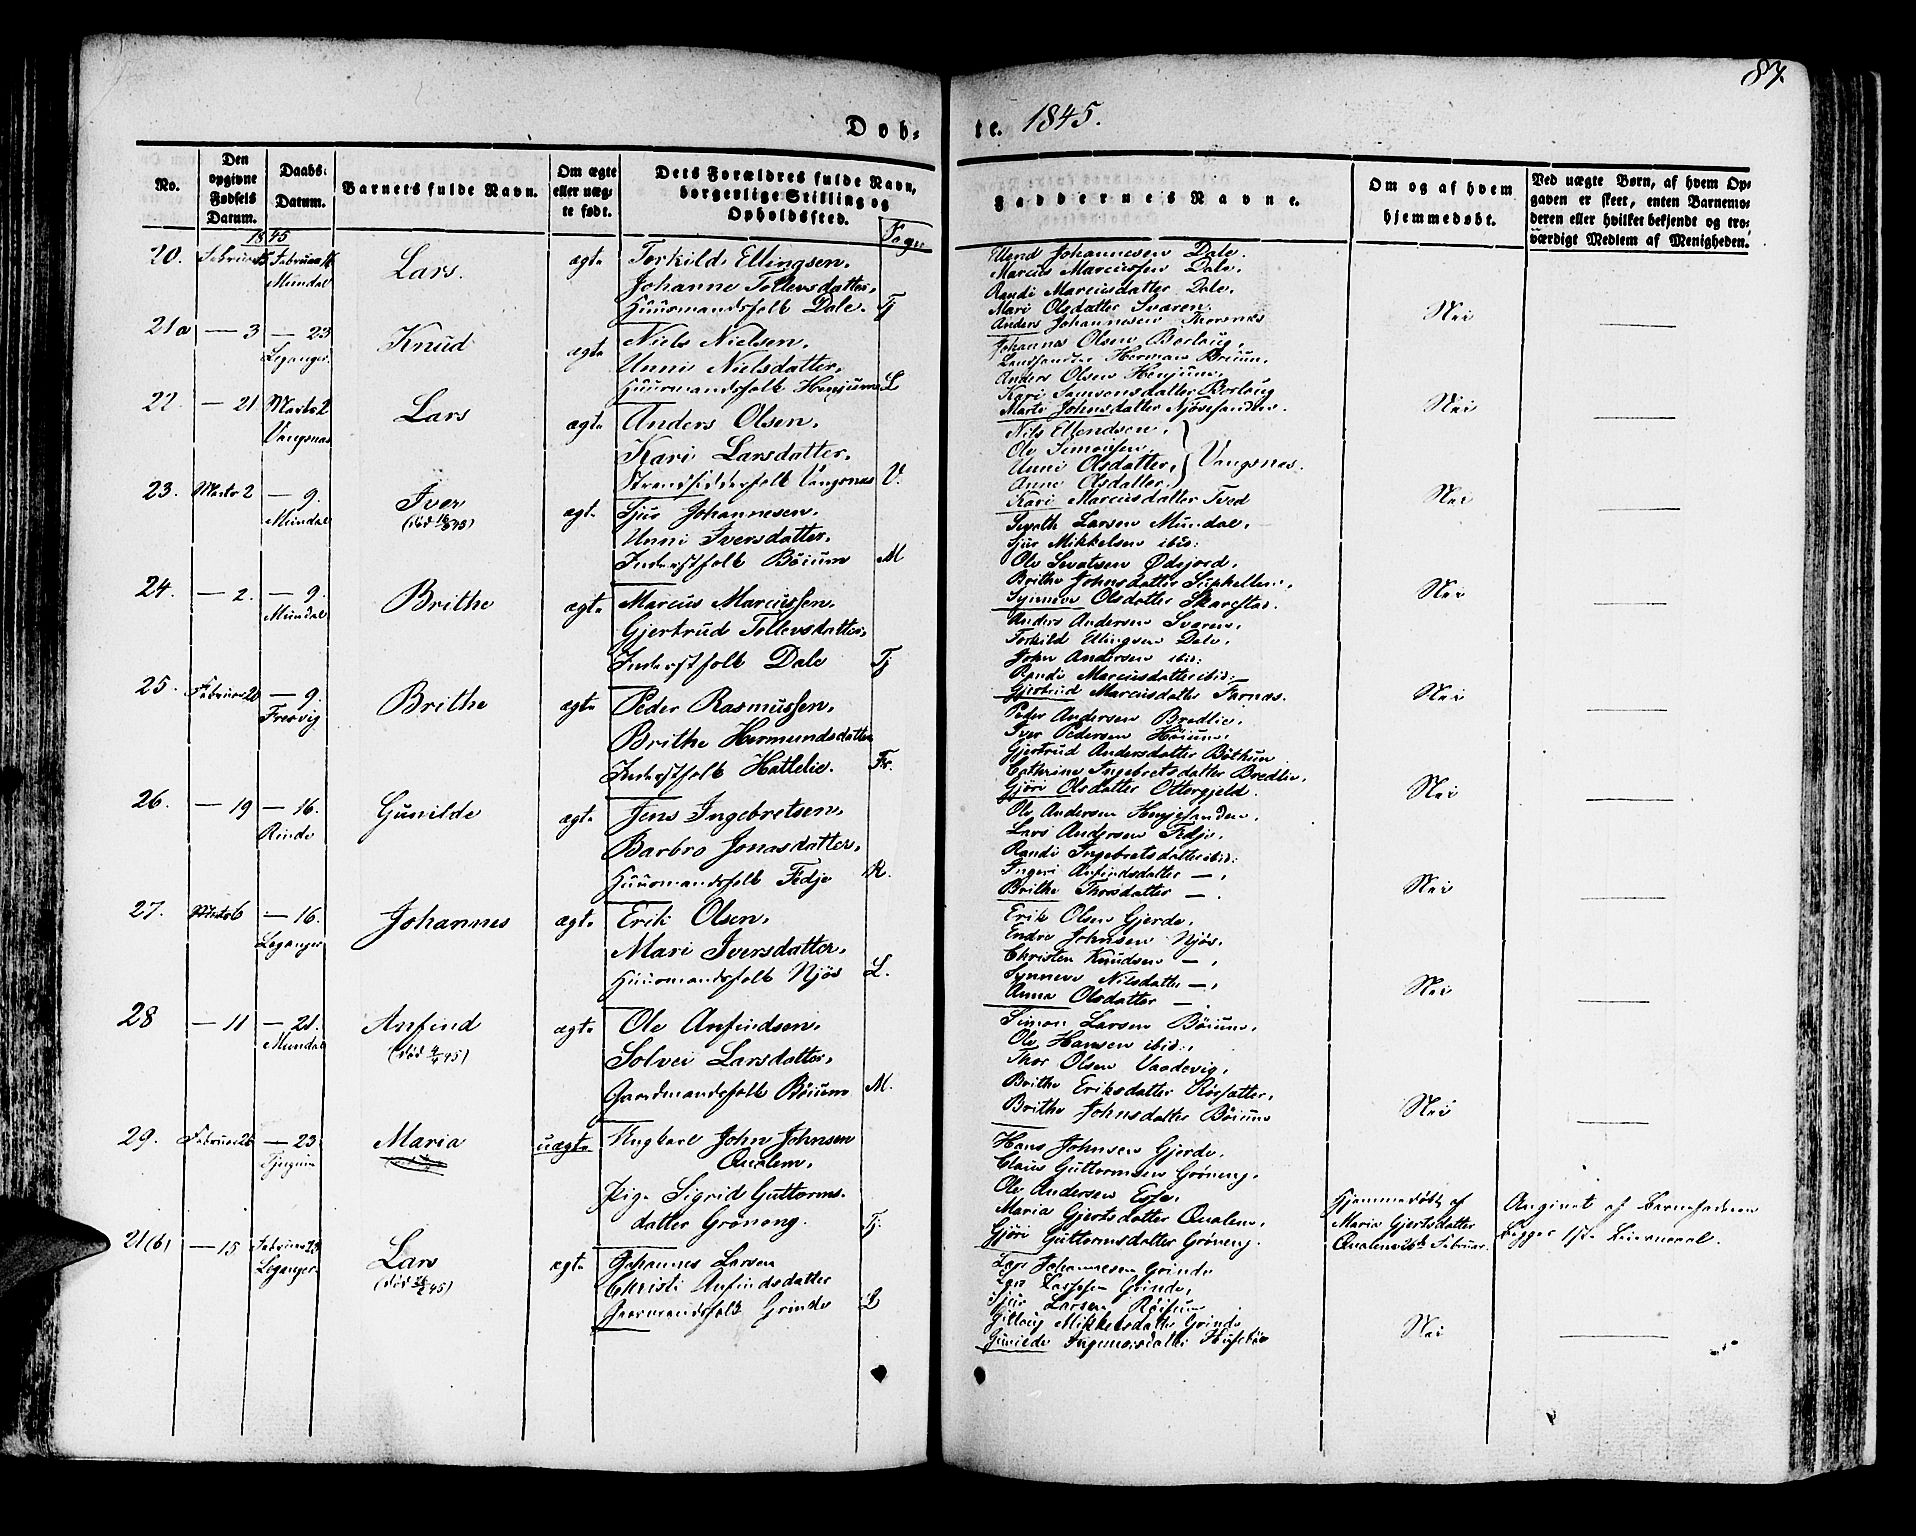 87.
Døb-
te. 1845.
No.
Den opgivne Fødsels Datum.
Daabs-Datum.
Barnets fulde Navn.
Om ægte eller uægte født.
Dets Forældres fulde Navn, borgerlige Stilling og Opholdssted.
Sogn
Faddernes Navne.
Om og af hvem hjemmedøbt.
Ved uægte Børn, af hvem Opgaven er skeet, enten Barnemoderen eller hvilket bekjendt og troværdigt Medlem af Menigheden.
1845
20. Februar Februar Mundal Lars. ægte Torkild Ellingsen,
Johanne Tollevsdatter,
Huusmandsfolk Dale. Tj
Ellend Johannesen Dale.
Marcus Marcussen Dale,
Randi Marcusdatter Dale,
Mari Olsdatter Svaren.
Anders Johannesen Thorsnes
Nei
21a — 3 — 23 Leganger. Knud ægte Niels Nielsen,
Unni Nielsdatter,
Huusmandsfolk Henjum L
Johannes Olsen Borlaug,
Herman Brium,
Anders Olsen Henjum,
Kari Samsonsdatter Borlaug
Marte Johnsdatter Njøsesanden.
Nei
22. — 21 Marts 2 Vangsnes Lars ægte Anders Olsen,
Kari Larsdatter,
Strandsidderfolk Vangsnes V.
Nils Ellendsen,
Ole Simonsen,
Unni Olsdatter, Vangsnes.
Anne Olsdatter,
Kari Marcusdatter Tved
Nei
23. Marts 2 — 9. Mundal Iver ægte Sjur Johannesen,
(død 45)
Unni Iversdatter,
Inderstfolk Bøium M
Sevath Larsen Mundal,
Sjur Mikkelsen ibid:
Ole Sevatsen Ødejord,
Brithe Johnsdatter Suphellen,
Synneve Olsdatter Skarestad.
Nei
24. — 2. — 9. Mundal Brithe ægte Marcus Marcussen,
Gjertrud Tollevsdatter,
Inderstfolk Dale Tj
Anders Andersen Svaren,
Torkild Ellingsen Dale,
John Andersen ibid:
Randi Marcusdatter ibid:
Gjertrud Marcusdatter Farnæs.
Nei
25. Februar 20 — 9. Fresvig Brithe ægte Peder Rasmussen,
Brithe Hermundsdatter
Inderstfolk Hattelie. Fr.
Peder Andersen Bredlie,
Iver Pedersen Høium,
Gjertrud Andersdatter Bøthun
Cathrine Ingebretsdatter Bredlie,
Gjøri Olsdatter Ottergjeld.
Nei
26. — 19 — 16. Rinde Gunilde ægte Jens Ingebretsen,
Barbro Jonasdatter,
Huusmandsfolk Fedje R.
Ole Andersen Hugjesanden,
Lars Andersen Fedje,
Randi Ingebretsdatter ibid:
Ingeri Anfindsdatter — ,
Brithe Thorsdatter — .
Nei
27. Marts 6 — 16. Leganger Johannes ægte Erik Olsen,
Mari Iversdatter,
Huusmandsfolk Njøs L.
Erik Olsen Gjerde,
Endre Johnsen Njøs,
Christen Knudsen — ,
Synneve Nilsdatter — ,
Anna Olsdatter — .
Nei
28 — 11 — 21. Mundal Anfind ægte Ole Anfindsen,
(død 45)
Solvei Larsdatter,
Gaardmandsfolk Bøium M.
Simon Larsen Bøium,
Ole Hansen ibid:,
Thor Olsen Vaadevig,
Brithe Eriksdatter Rørsætter,
Brithe Johnsdatter Bøium
Nei
29. Februar 26 — 23 Tjugum Maria uægte Ungkarl John Johnsen
Qualem,
Pige Sigrid Guttorms-
datter Grøneng. Tj.
Hans Johnsen Gjerde,
Claus Guttormsen Grøneng,
Ole Andersen Esse,
Maria Gjertsdatter Qualem,
Gjøri Guttormsdatter Grøneng.
Hjemmedøbt af
Maria Gjertsdatter
Qualem 26de Februar.
Angivet af Barnefaderen
Begges 1ste Leiermaal.
21(b) — 15 Februar 23 Leganger Lars ægte Johannes Larsen
(død 45)
Christi Anfindsdatter
Gaarmandsfolk Grinde L
Lars Johannesen Grinde
Lars Lassesen Grinde,
Sjur Larsen Røisum
Gitlaug Mikkelsdatter Grinde
Gunilde Ingemoesdatter Husebøe
Nei